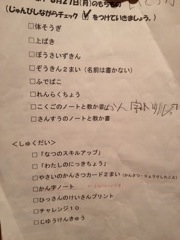 8月27日(月)のもち
(じゅんびしながらチェック☑をつけていきましょう。)
□体そうぎ
□上ばき
□ぼうさいずきん
□ぞうきん2まい(名前は書かない)
□ふでばこ
□れんらくちょう
□こくごのノートと教か書
□さんすうのノートと教か書
<しゅくだい>
□「なつのスキルアップ」
□「わたしのにっきちょう」
□やさいのかんさつカード2まい
□かん字ノート
□ひっさんのけいさんプリント
□チャレンジ10
□じゆうけんきゅう